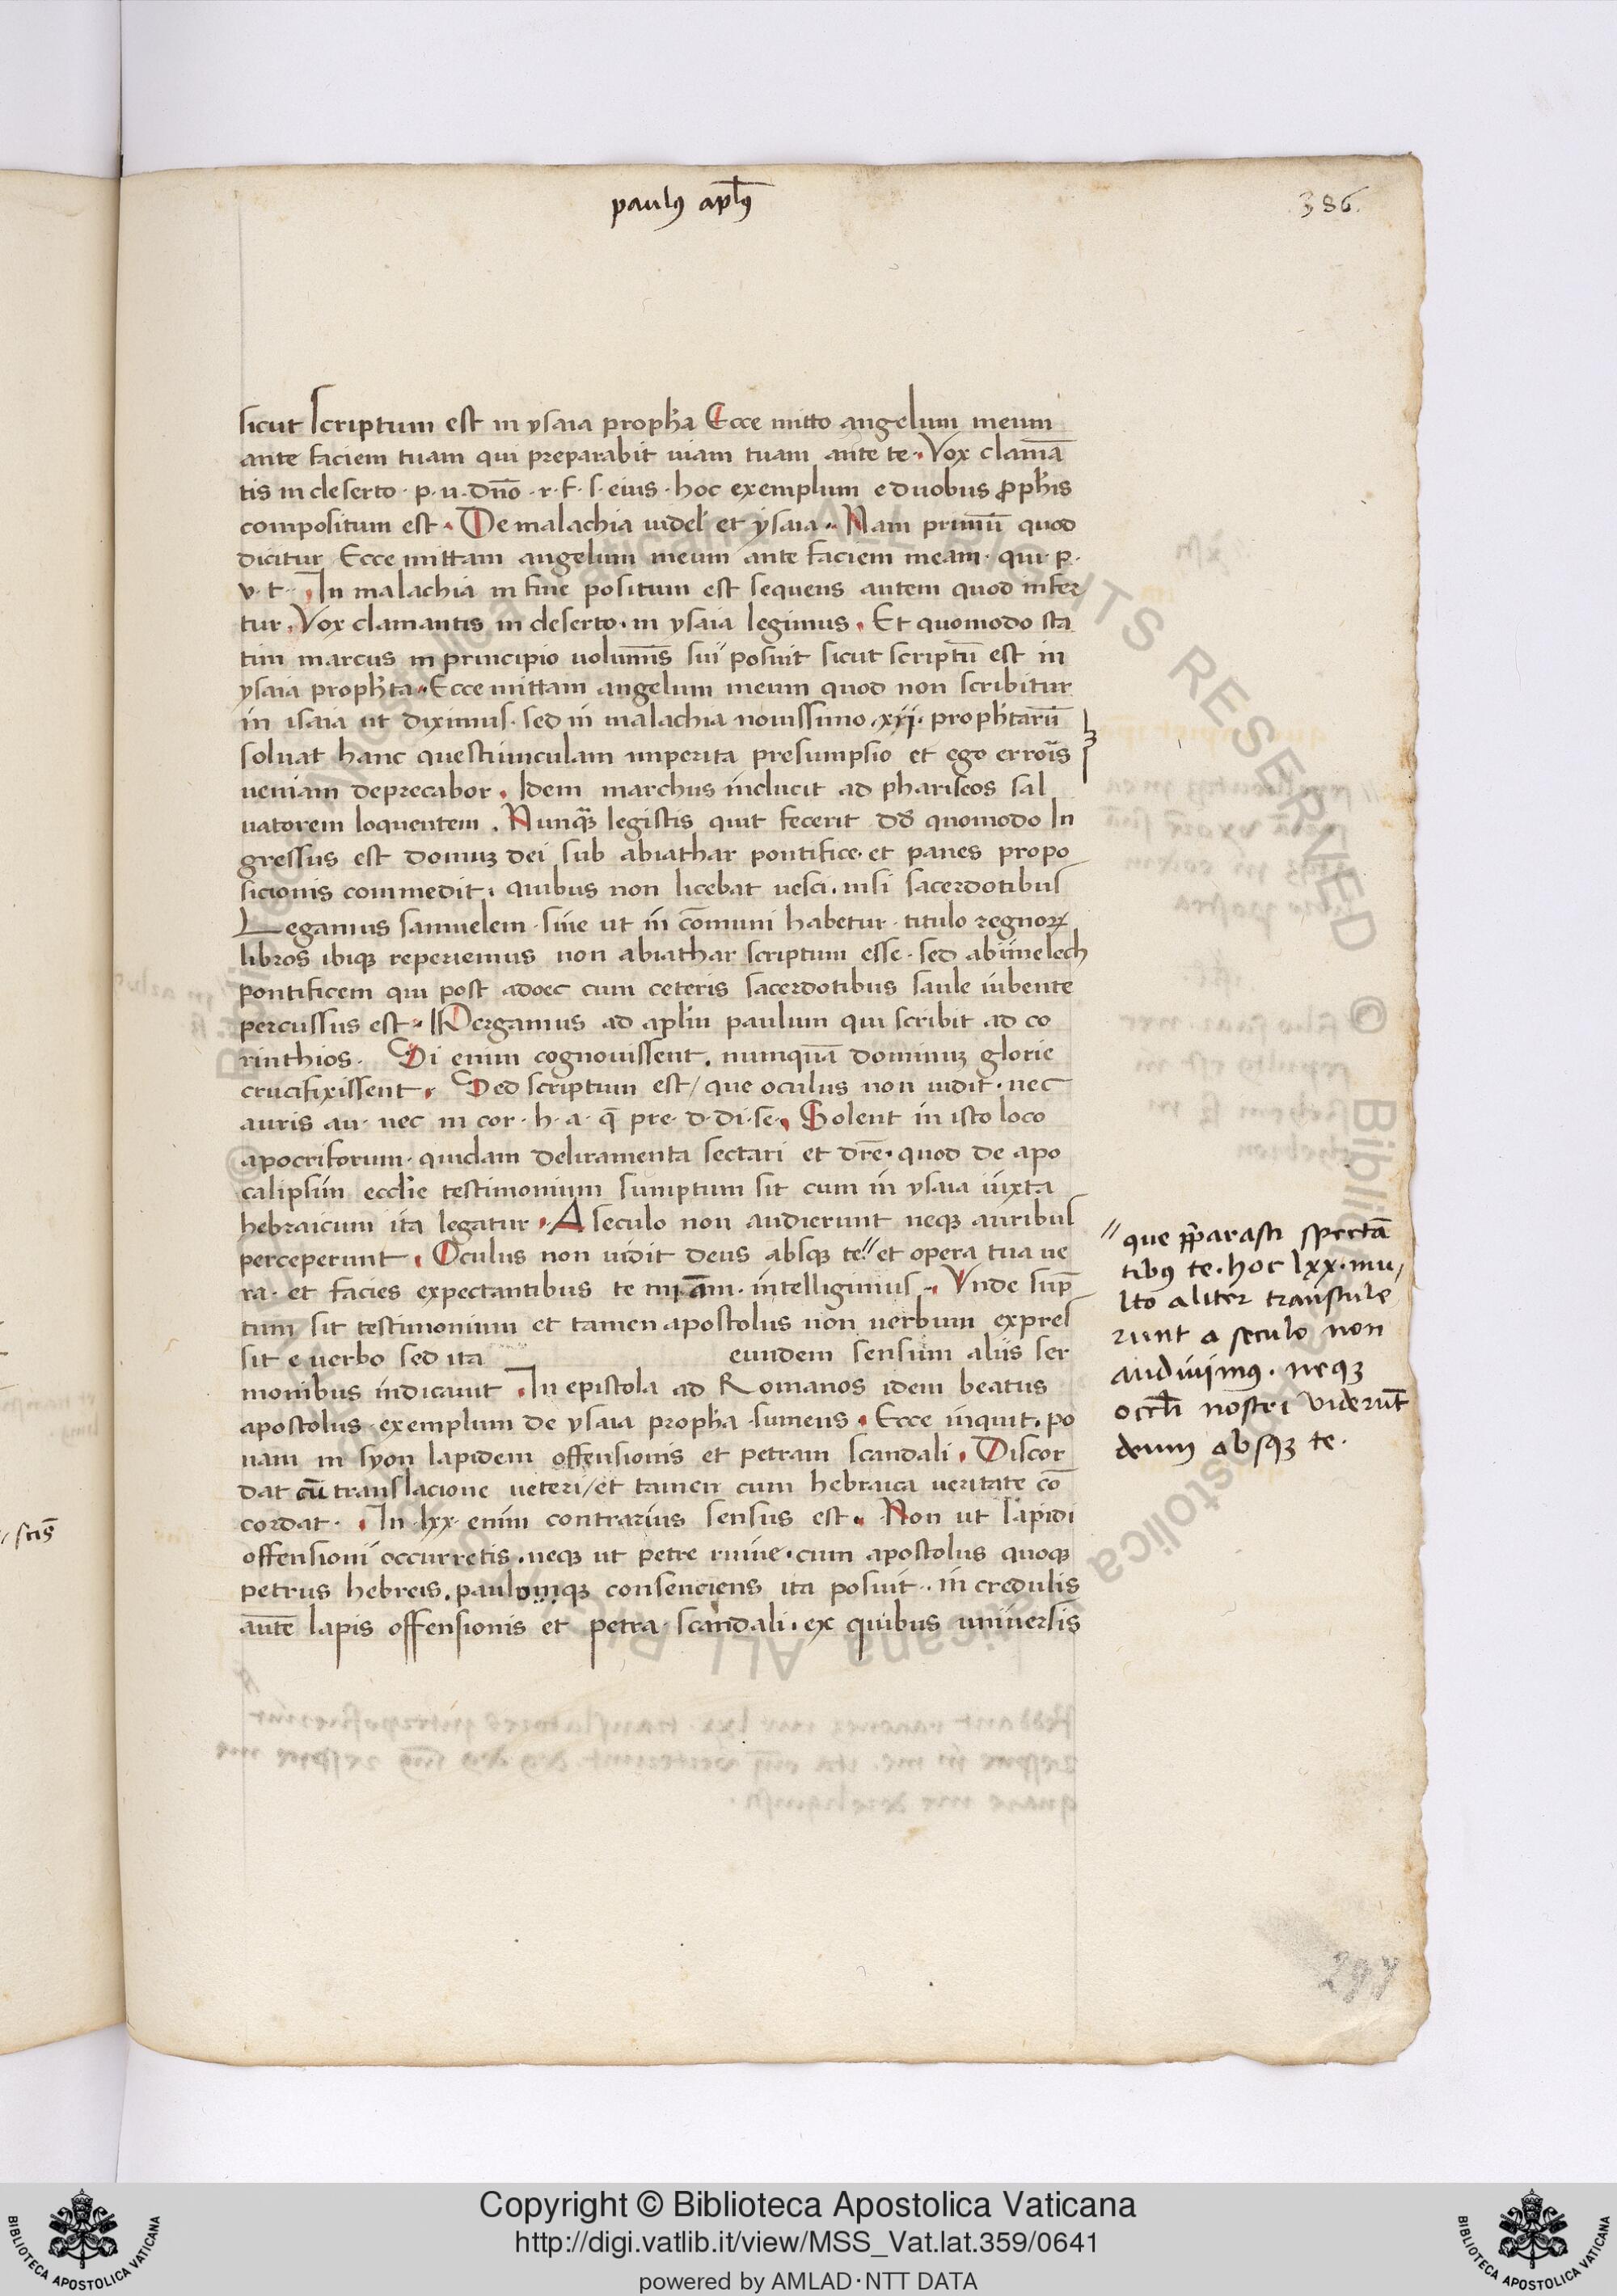 paulꝰ aplꝰ
386.
sicut scriptum est in ysaia proph̄a Ecce mitto angelum meum
ante faciem tuam qui preparabit uiam tuam ante te. Vox clamā
tis in deserto. p. u. dn̄o. r. f. s. eius. hoc exemplum e duobus ꝓph̄is
compositum est. De malachia uidel' et ysaia. Nam primū quod
dicitur Ecce mittam angelum meum ante faciem meam. qui. p.
v. t. In malachia in fine positum est sequens autem quod infer
tur. Vox clamantis in deserto. in ysaia legimus. Et quomodo sta
tim marcus in principio uolumīs sui posuit sicut scriptū est in
ysaia proph̄ta. Ecce mittam angelum meum quod non scribitur
in isaia ut diximus. sed in malachia nouissimo .xij. proph̄tarū
soluat hanc questiunculam imperita presumpsio et ego erroīs
ueniam deprecabor. Idem marchus inducit ad phariseos sal
uatorem loquentem. Nunqᷓꝫ legistis quit fecerit dd̄ quomodo In
gressus est domuꝫ dei sub abiathar pontifice. et panes propo
sicionis commedit. quibus non licebat uesci. nisi sacerdotibus
Legamus samuelem. siue ut in cōmuni habetur. titulo regnoꝝ
libros ibiqꝫ reperiemus non abiathar scriptum esse. sed abimelech
pontificem qui post adoec cum ceteris sacerdotibus saule iubente
percussus est. Pergamus ad apl̄m paulum qui scribit ad co
rinthios. Si enim cognouissent. numquā dominuꝫ glorie
crucifixissent. Sed scriptum est/ que oculus non uidit. nec
auris au. nec in cor. h. a. q̄ pre. d. di. se. Solent in isto loco
apocriforum. quidam deliramenta sectari et dr̄e. quod de apo
calipsim eccl̄ie testimonium sumptum sit cum in ysaia iuxta
hebraicum ita legatur. A seculo non audierunt neqꝫ auribus
perceperunt. Oculus non uidit deus absqꝫ te.″ et opera tua ue
ra. et facies expectantibus te mi am̄. intelligimus. Vnde sup̄
tum sit testimonium et tamen apostolus non uerbum expres
sit e uerbo sed ita eundem sensum aliis ser
monibus indicauit. In epistola ad Romanos idem beatus
apostolus. exemplum de ysaia proph̄a. sumens. Ecce inquit. po
nam in syon lapidem offensionis et petram scandali. Discor
dat cū translacione ueteri/ et tamen cum hebraica ueritate cō
cordat. In. lxx. enim contrarius sensus est. Non ut lapidi
offensioni occurretis. neqꝫ ut petre ruine. cum apostolus quoqꝫ
petrus hebreis. paulumqꝫ consenciens ita posuit. in credulis
aūte lapis offensionis et petra. scandali. ex quibus uniuersis
″ que p̄parasti spectā
tibꝰ te. hoc lxx. mu/
lto aliter transtule
runt a seculo non
audiuimꝰ. neqꝫ
occl̄i nostri viderūt
deum absqꝫ te.
scīs
297
Copyright © Biblioteca Apostolica Vaticana
http://digi.vatlib.it/view/MSS_Vat.lat.359/0641
powered by AMLAD·NTT DATA
BIBLIOTECA APOSTOLICA VATICANA
BIBLIOTECA APOSTOLICA VATICANA